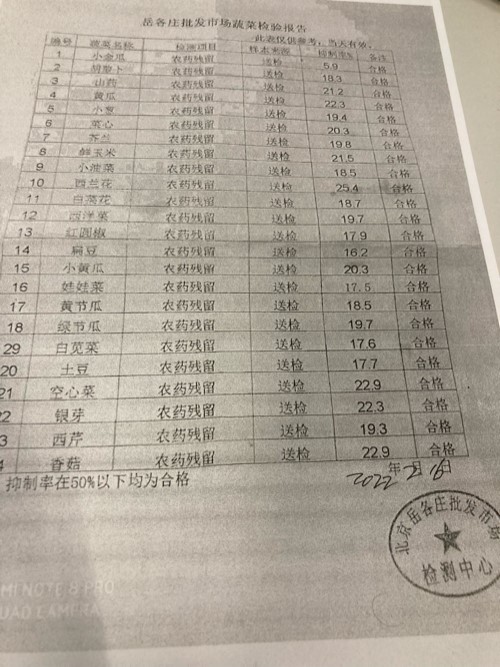 岳各庄批发市场蔬菜检验报告
此表仅供参考，当天有效。
编号 蔬菜名称 检测项目 样本来源 抑制率% 备注
1 小金瓜 农药残留 送检 5.9 合格
2 胡萝卜 农药残留 送检 18.3 合格
3 山药 农药残留 送检 21.2 合格
4 黄瓜 农药残留 送检 22.3 合格
5 小葱 农药残留 送检 19.4 合格
6 菜心 农药残留 送检 20.3 合格
7 芥兰 农药残留 送检 19.8 合格
8 鲜玉米 农药残留 送检 21.5 合格
9 小油菜 农药残留 送检 18.5 合格
10 西兰花 农药残留 送检 25.4 合格
11 白菜花 农药残留 送检 18.7 合格
12 西洋菜 农药残留 送检 19.7 合格
13 红圆椒 农药残留 送检 17.9 合格
14 扁豆 农药残留 送检 16.2 合格
15 小黄瓜 农药残留 送检 20.3 合格
16 娃娃菜 农药残留 送检 17.5 合格
17 黄节瓜 农药残留 送检 18.5 合格
18 绿节瓜 农药残留 送检 19.7 合格
29 白苋菜 农药残留 送检 17.6 合格
20 土豆 农药残留 送检 17.7 合格
21 空心菜 农药残留 送检 22.9 合格
22 银芽 农药残留 送检 22.3 合格
3 西芹 农药残留 送检 19.3 合格
4 香菇 农药残留 送检 22.9 合格
抑制率在50%以下均为合格
2022年2月16日
北京岳各庄批发市场
检测中心
MI NOTE 8 PRO
QUAD CAMERA